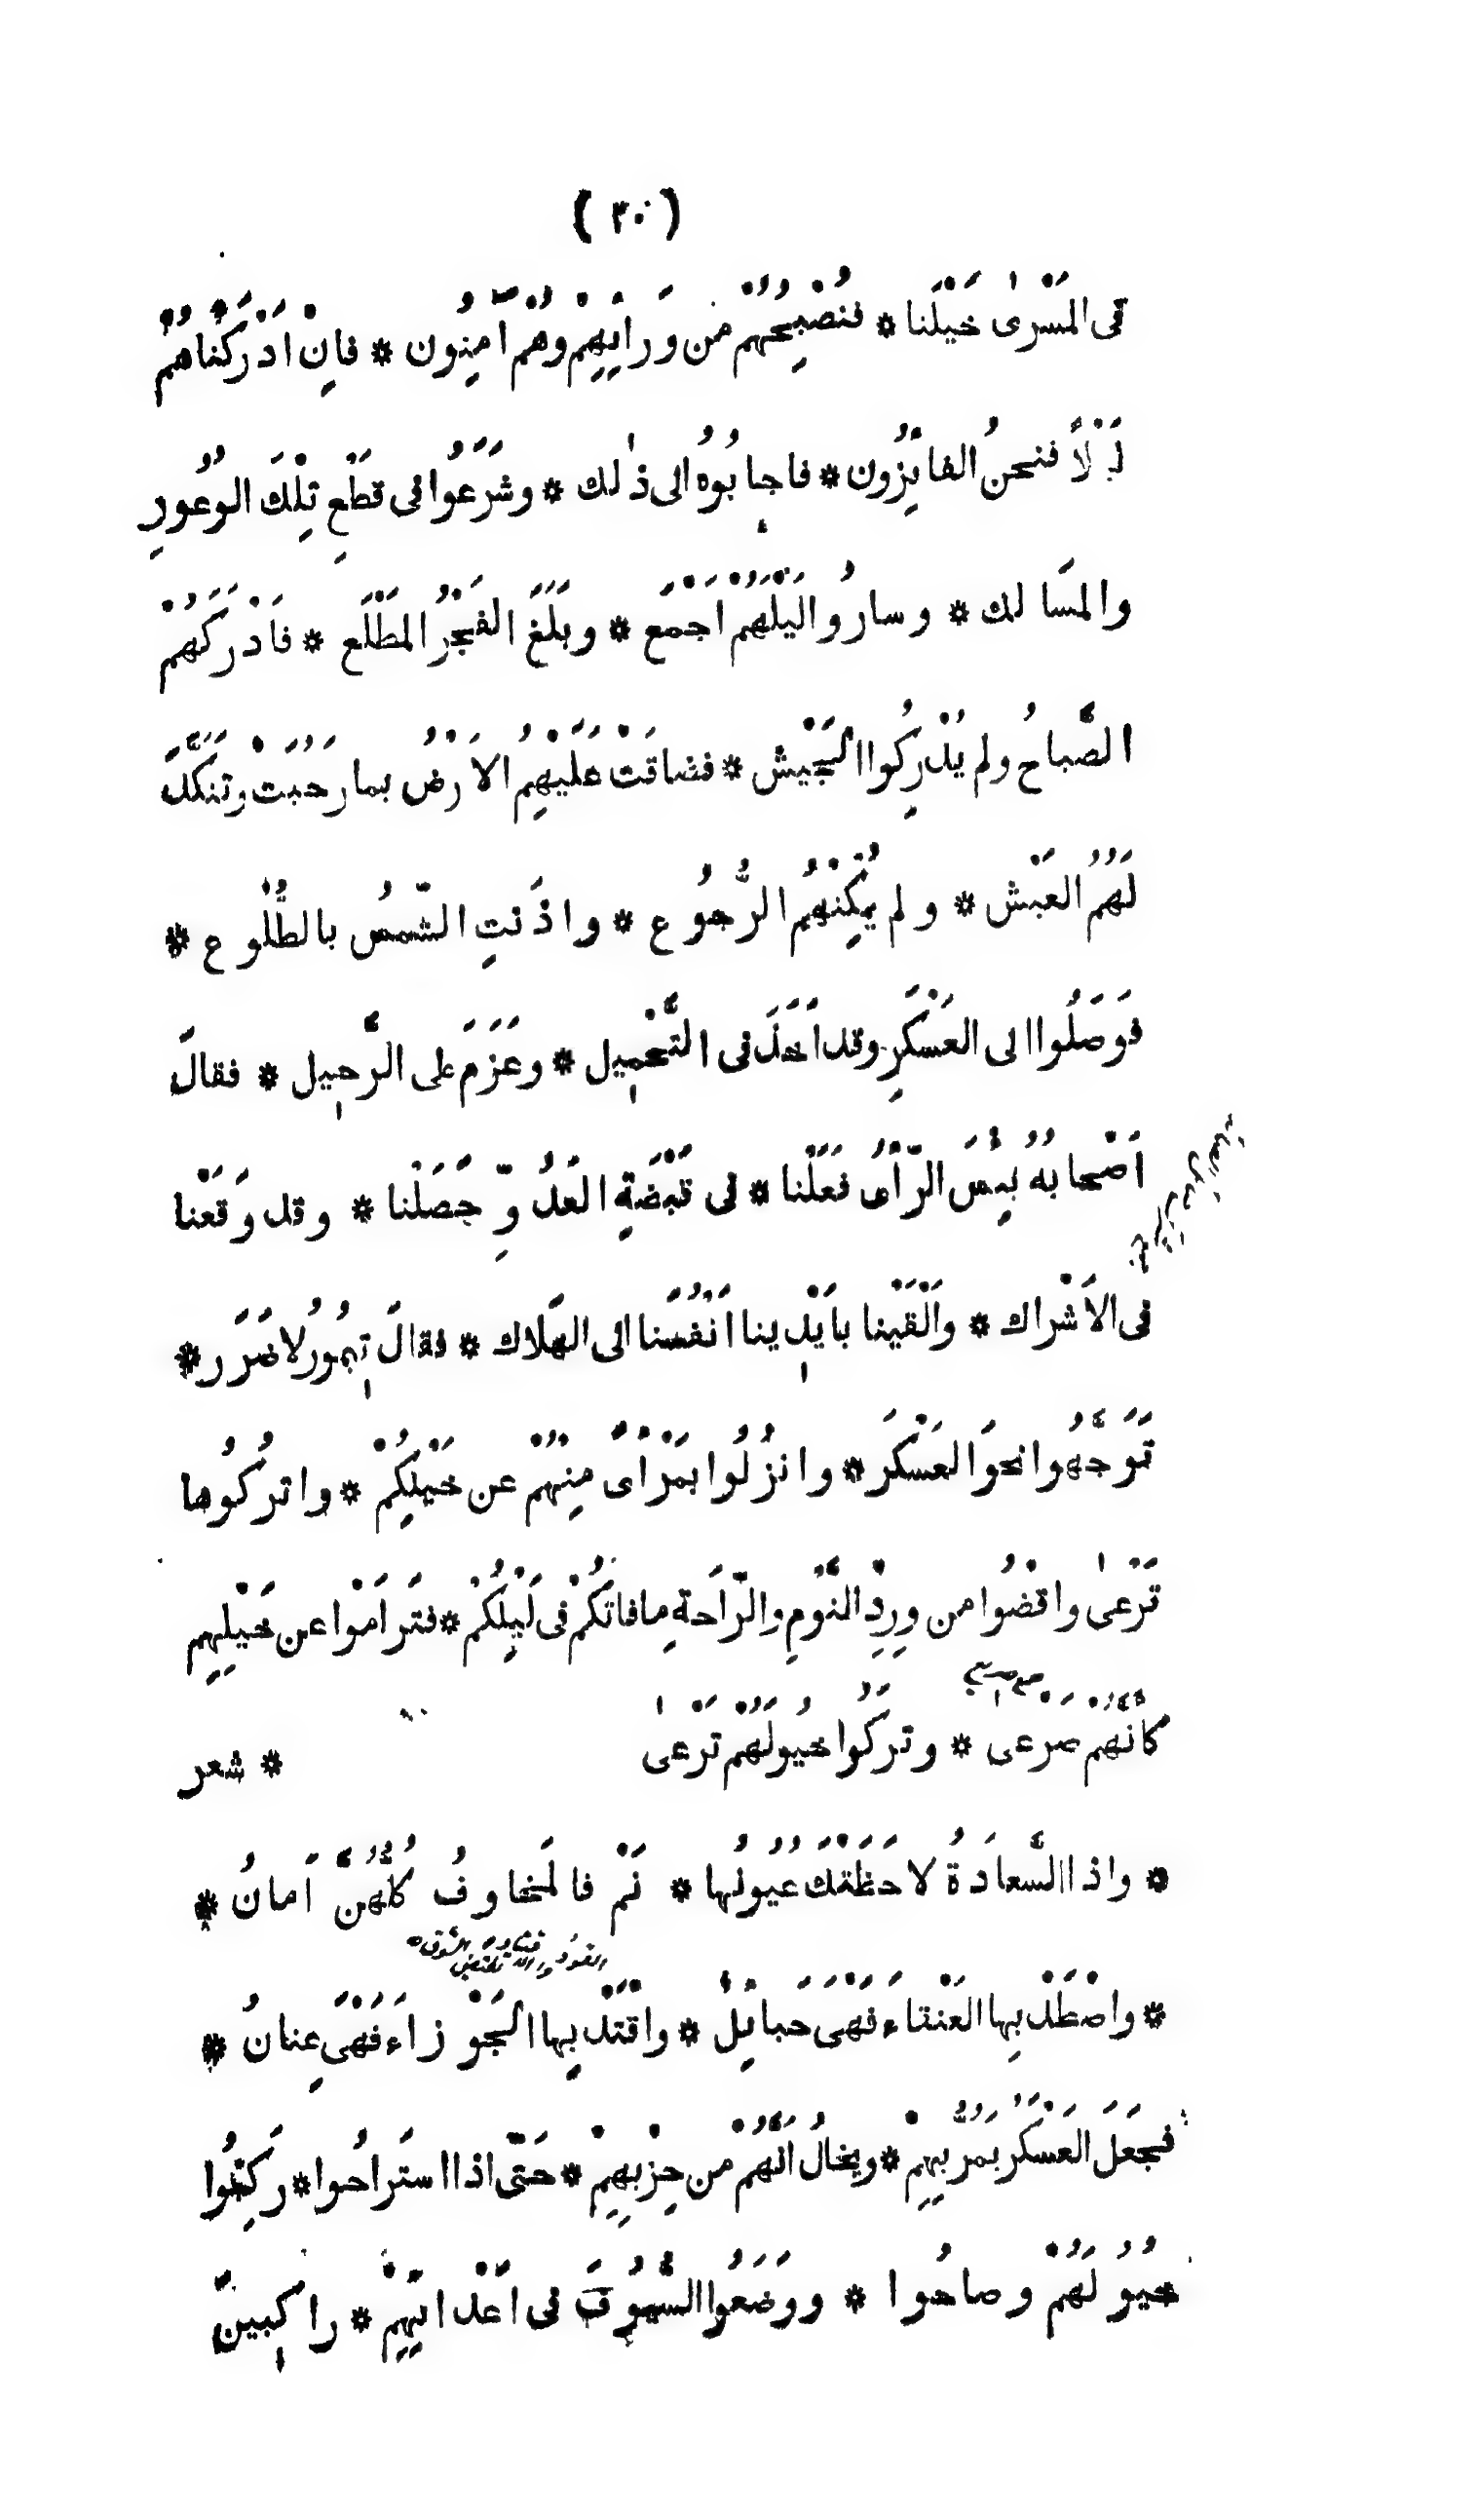 (٢٠)
فى المَسْرىٰ خَيْلَنا * فنُصْبِحُهُمْ من وَرائِهِمْ وهُمْ آمِنُون * فاِنْ اَدْرَكْناهُمْ
لَيْلًا فنحنُ الفائِزُون * فاجابُوهُ الى ذٰلك * وشَرَعُوا فى قطَعِ تِلْكَ الوُعُورِ
والمسَالك * وسارُوا لَيْلَهُمْ اَجْمَع * وبَلَغَ الفَجْرُ المَطْلَع * فاَدْرَكَهُمْ
الصَّباحُ ولم يُدْرِكُوا الجَيْش * فضاقَتْ عَلَيْهِمُ الاَرْضُ بما رَحُبَتْ وتَنَكَّدَ
لَهُمُ العَيْش * ولم يُمْكِنْهُمُ الرُّجُوع * واذَنتِ الشّمسُ بالطُّلُوع *
فوَصَلُوا الى العَسْكَرِ وقد اَخَذَ فى التَّحْمِيل * وعَزَمَ على الرَّحِيل * فقالَ
اَصْحابُهُ بِئْسَ الرّأْىُ فَعَلْنا * فى قَبْضَةِ العَدُوِّ حَصَلْنا * وقد وَقَعْنا
فى الاَشْراك * واَلْقَيْنا باَيْدِينا اَنْفُسَنا الى الهَلاك * فقالَ تِيمُورُ لا ضَرَر *
تَوَجَّهُوا نحوَ العَسْكَر * وانزُلُوا بمَرْأىً مِنهُمْ عن خَيْلِكُمْ * واتركُوها
تَرْعىٰ واقضُوا من وِرِدْ النَّوْمِ والرّاحَةِ ما فاتَكُمْ فى لَيْلِكُمْ * فتَرامَوْا عن خَيْلِهِم
كاَنّهُمْ صَرْعى * وتَركُوا خيُولَهُمْ تَرْعىٰ * شعر
* واذا السَّعادَةُ لاحَظَتْكَ عُيُونُها * نَمْ فالمَخاوفُ كُلُّهُنَّ اَمانُ *
* واصْطَدْ بِها العَنْقاءَ فَهْىَ حَبائِلُ * واقْتَدْ بِها الجَوْزاءَ فَهْىَ عِنانُ *
فجَعَلَ العَسْكَرُ يمُرُّ بِهِمْ * ويخالُ اَنّهُمْ من حِزْبهِمْ * حَتّى اذا استَراحُوا * رَكِبُوا
خيُولَهُمْ وصاحُوا * ووَضَعُوا السُّيُوفَ فى اَعْدائِهِمْ * راكِبينَ